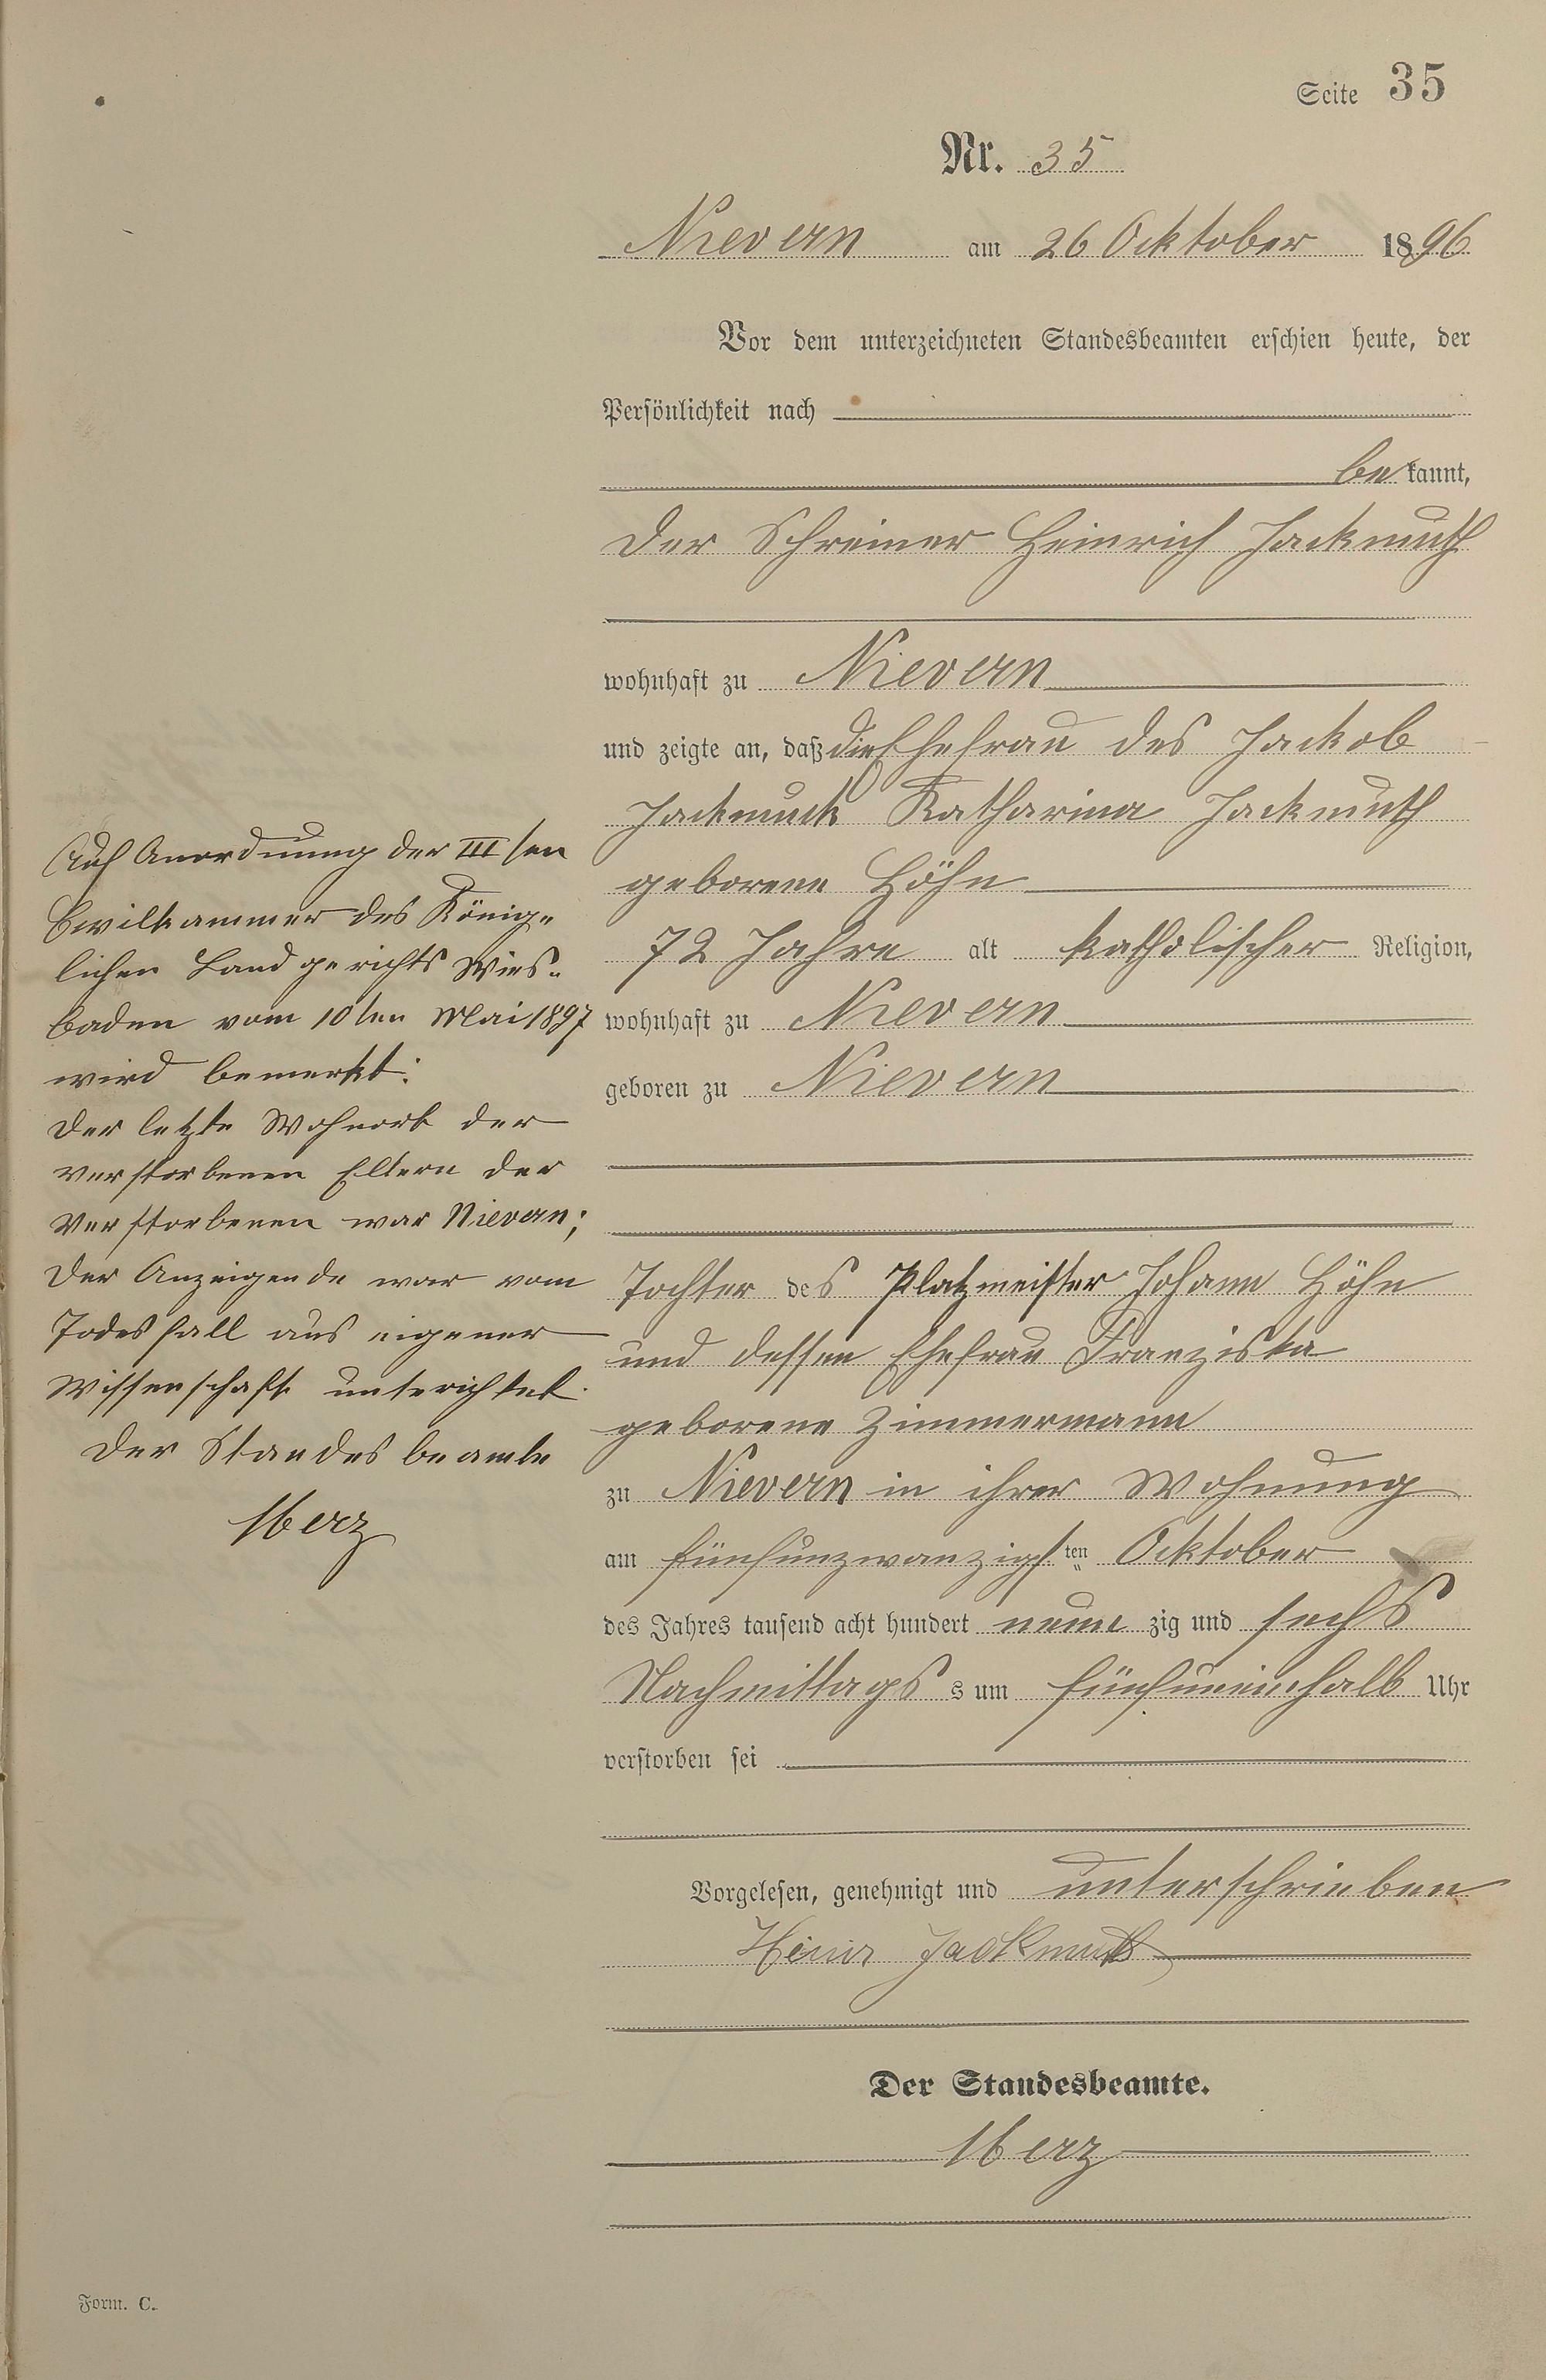 Seite 35
Nr. 35
Nievern am 26 Ocktober 1896
Vor dem unterzeichneten Standesbeamten erschien heute, der
Persönlichkeit nach
be kannt,
der Schreiner Heinrich Jackmuth
wohnhaft zu Nievern
und zeigte an, daß die Ehefrau des Jackob
Jackmuth Katharina Jackmuth
geborene Höhn
72 Jahre alt katholischer Religion,
wohnhaft zu Nievern
geboren zu Nievern
Tochter des Platzmeister Johann Höhn
und dessen Ehefrau Franziska
geborene Zimmermann
zu Nievern in ihrer Wohnung
am fünfunzwanzigsten Ocktober
des Jahres tausend acht hundert neun zig und sechs
Nachmittags s um fünfuneinhalb Uhr
verstorben sei
Vorgelesen, genehmigt und unterschrieben
Heinr Jackmuth
Der Standesbeamte.
Merz
Auf Anordnung der III ten
Civilkammer des König-
lichen Landgerichts Wies-
baden vom 10ten Mai 1897
wird bemerkt:
Der letzte Wohnort der
verstorbenen Eltern der
Verstorbenen war Nievern;
Der Anzeigende war vom
Todesfall aus eigener
Wissenschaft unterichtet.
Der Standesbeamte
Merz
Form. C.